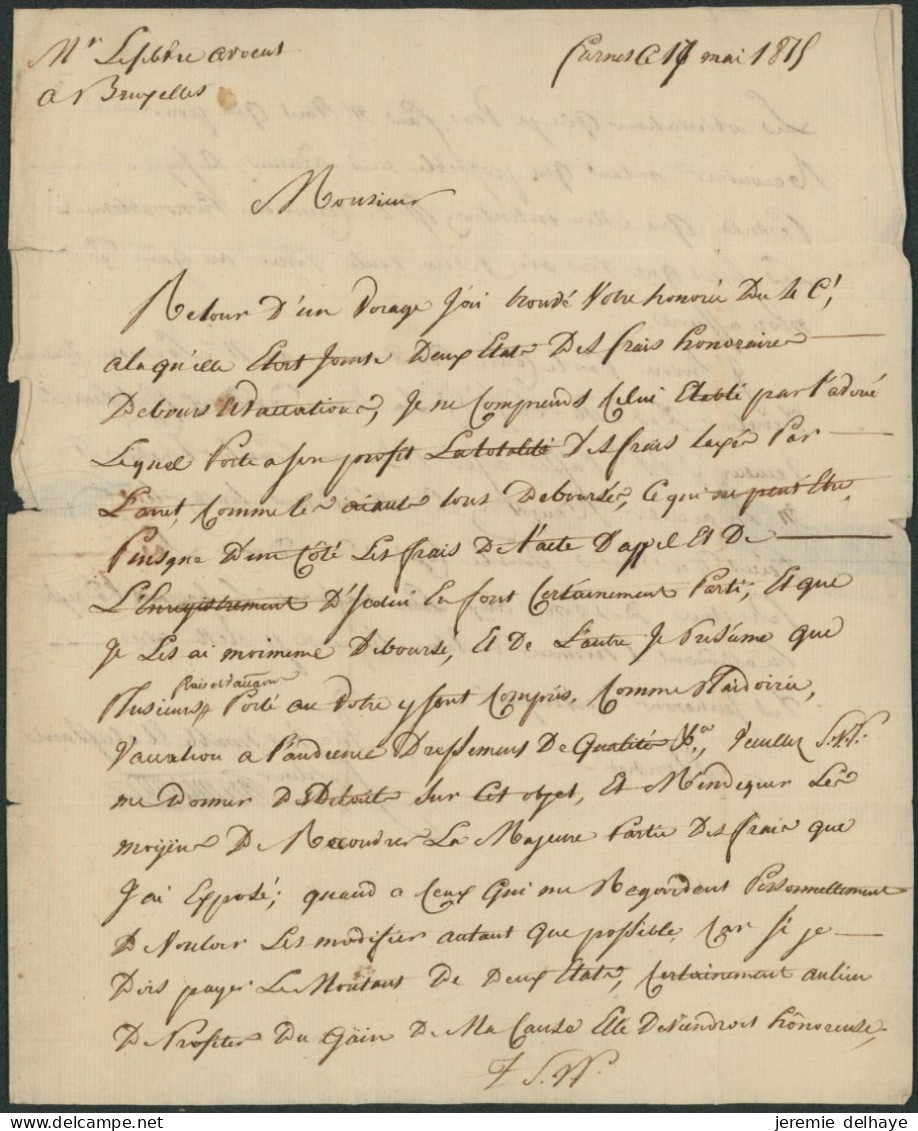 Mr Lefebvre avocat
a Bruxelles
Carnes Ce 17 mai 1815
Monsieur
Retour D'un Voiage J'ai trouvé Votre honorée Du 4 Ct,
a laqu'elle Etoit Jointe Deux Etats Des frais honoraires
Debours et vacations, Je ne Comprends Celui Etabli par l'avoué
Lequel Porte a son profit La totalité Des frais taxés Par
L'arret, Comme les aiant tous Deboursés, Ce qui ne peut Etre,
Puisque D'un Côté Les frais De l'acte D'appel Et De
L'Enregistrement D'Icelui En font Certainement Parti, Et que
Je Les ai moimeme Deboursé, Et De L'autre Je Présume que
Plusieurs frais et vacations Porté au Votre y sont Compris, Comme Plaidoirie,
Vacation a l'audience Dressement De Qualités &a, Veuillez S.V.P.
me donner Des Details sur Cet objet, Et M'indiquer Les
moijens De Recouvrer La Majeure Partie Des frais que
J'ai Exposé; quand a Ceux Qui me Regardent Personnellement
De Vouloir Les modifier autant que possible, Car si je
Dois payer Le Montant De Deux Etats, Certainement aulieu
De Profiter Du Gain De Ma Cause Elle Deviendroit honoreuse,
T. S. V. P.
jeremie delhaye